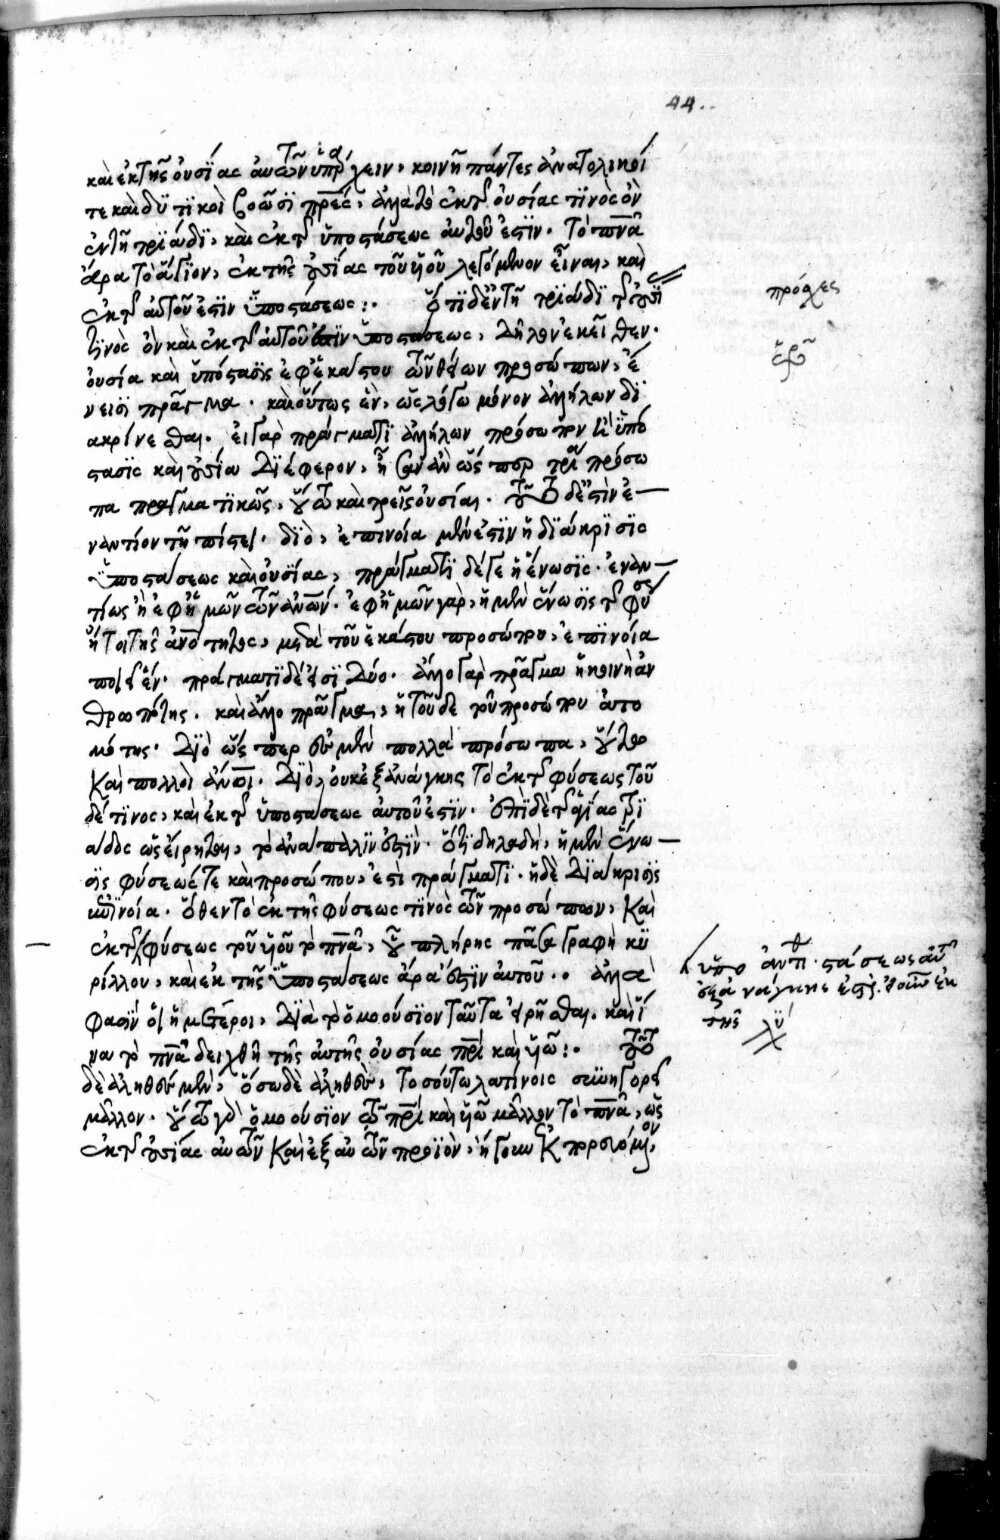 44..
καὶ ἐκ τῆς οὐσίας αὐτῶν ὑπάρχειν, κοινῇ πάντες ἀνατολικοί
τε καὶ δυτικοὶ βοῶσι πρες, ἀλλὰ τὸ ἐκ τ οὐσίας τινὸς ὂν
ἐν τῇ τριάδι, καὶ ἐκ τ ὑποστάσεως αὐτοῦ ἐστίν. Τὸ πνᾶ
ἄρα τὸ ἅγιον, ἐκ τῆς οὐσίας τοῦ υἱοῦ λεγόμενον εἶναι, καὶ
ἐκ τ αὐτοῦ ἐστὶν ὑποστάσεως:. ὅτι δὲ ἐν τῇ τριάδι τ οὐσί
τινὸς ὂν καὶ ἐκ τ αὐτοῦ ἐστιν ὑποστάσεως, δῆλον ἐκεῖθεν.
οὐσία καὶ ὑπόστασις ἐφ ἑκάστου τῶν θείων προσώπων, ἕ
ν εἰσι πρᾶγμα. καὶ οὕτως ἓν, ὡς λόγῳ μόνον ἀλλήλων δι
ακρίνεσθαι. εἰ γὰρ πράγματι ἀλλήλων πρόσωπον καὶ ὑπό
στασις καὶ οὐσία διέφερον, ἦσαν ἂν ὥσπερ τρία πρόσω
πα πραγματικῶς, οὕτω καὶ τρεῖς οὐσίαι. τοῦτο δέ ἐστιν ἐ
ναντίον τῇ πίστει. διὸ, ἐπινοίᾳ μέν ἐστιν ἡ διάκρισις
ὑποστάσεως καὶ οὐσίας, πράγματι δέ γε ἡ ἕνωσις. ἐναν
τίως ἢ ἐφ ἡμῶν τῶν ἀνων. ἐφ ἡμῶν γὰρ, ἡ μὲν ἕνωσις τ φύσ
ἤτοι τῆς ἀνότητος, μετὰ τοῦ ἑκάστου προσώπου, ἐπινοίᾳ
ποιεῖ ἕν. πράγματι δέ εἰσι δύο. ἄλλο γὰρ πρᾶγμα ἡ κοινὴ ἀν
θρωπότης. καὶ ἄλλο πρᾶγμα, ἡ τοῦδε τοῦ προσώπου ἀτο
μότης. διὸ ὥσπερ μὲν πολλὰ πρόσωπα, οὕτω
καὶ πολλοὶ ἄνοι. διὸ, οὐκ ἐξ ἀνάγκης τὸ ἐκ τ φύσεως τοῦ
δέ τινος, καὶ ἐκ τ ὑποστάσεως αὐτοῦ ἐστίν. ἐπὶ δὲ τ ἁγίας τρι
άδος ὡς εἴρηται, τὸ ἀνάπαλίν ἐστιν. ὅτι δηλαδὴ, ἡ μὲν ἕνω
σις φύσεώς τε καὶ προσώπου, ἐστὶ πράγματι. ἡ δὲ διάκρισις
ἐπινοίᾳ. ὅθεν τὸ ἐκ τῆς φύσεως τινὸς τῶν προσώπων, καὶ
ἐκ τ φύσεως τοῦ υἱοῦ τὸ πνᾶ, οὗ πλήρης πᾶσα γραφὴ κυ
ρίλλου, καὶ ἐκ τῆς ὑποστάσεως ἄρα ἐστὶν αὐτοῦ.. ἀλλὰ
φασὶν οἱ ἡμέτεροι, διὰ τὸ ὁμοούσιον ταῦτα εἰρῆσθαι. καὶ ἵ
να τὸ πνᾶ δειχθῇ τῆς αὐτῆς οὐσίας πρὶ καὶ υἱῷ:. τοῦτο
δὲ ἀληθὲς μὲν, ὅσῳ δὲ ἀληθὲς, τοσούτῳ λατίνοις συνηγορεῖ
μᾶλλον. οὕτω γὰρ ὁμοούσιον τῷ πρὶ καὶ υἱῷ μᾶλλον τὸ πνᾶ, ὡς
ἐκ τ οὐσίας αὐτῶν καὶ ἐξ αὐτῶν προϊὸν, ἤγουν ἐκπορευόμενον
πρόσχες
ὑποστάσεως αὐτοῦ
ἐξ ἀνάγκης ἐστὶ. ἐκ
τῆς